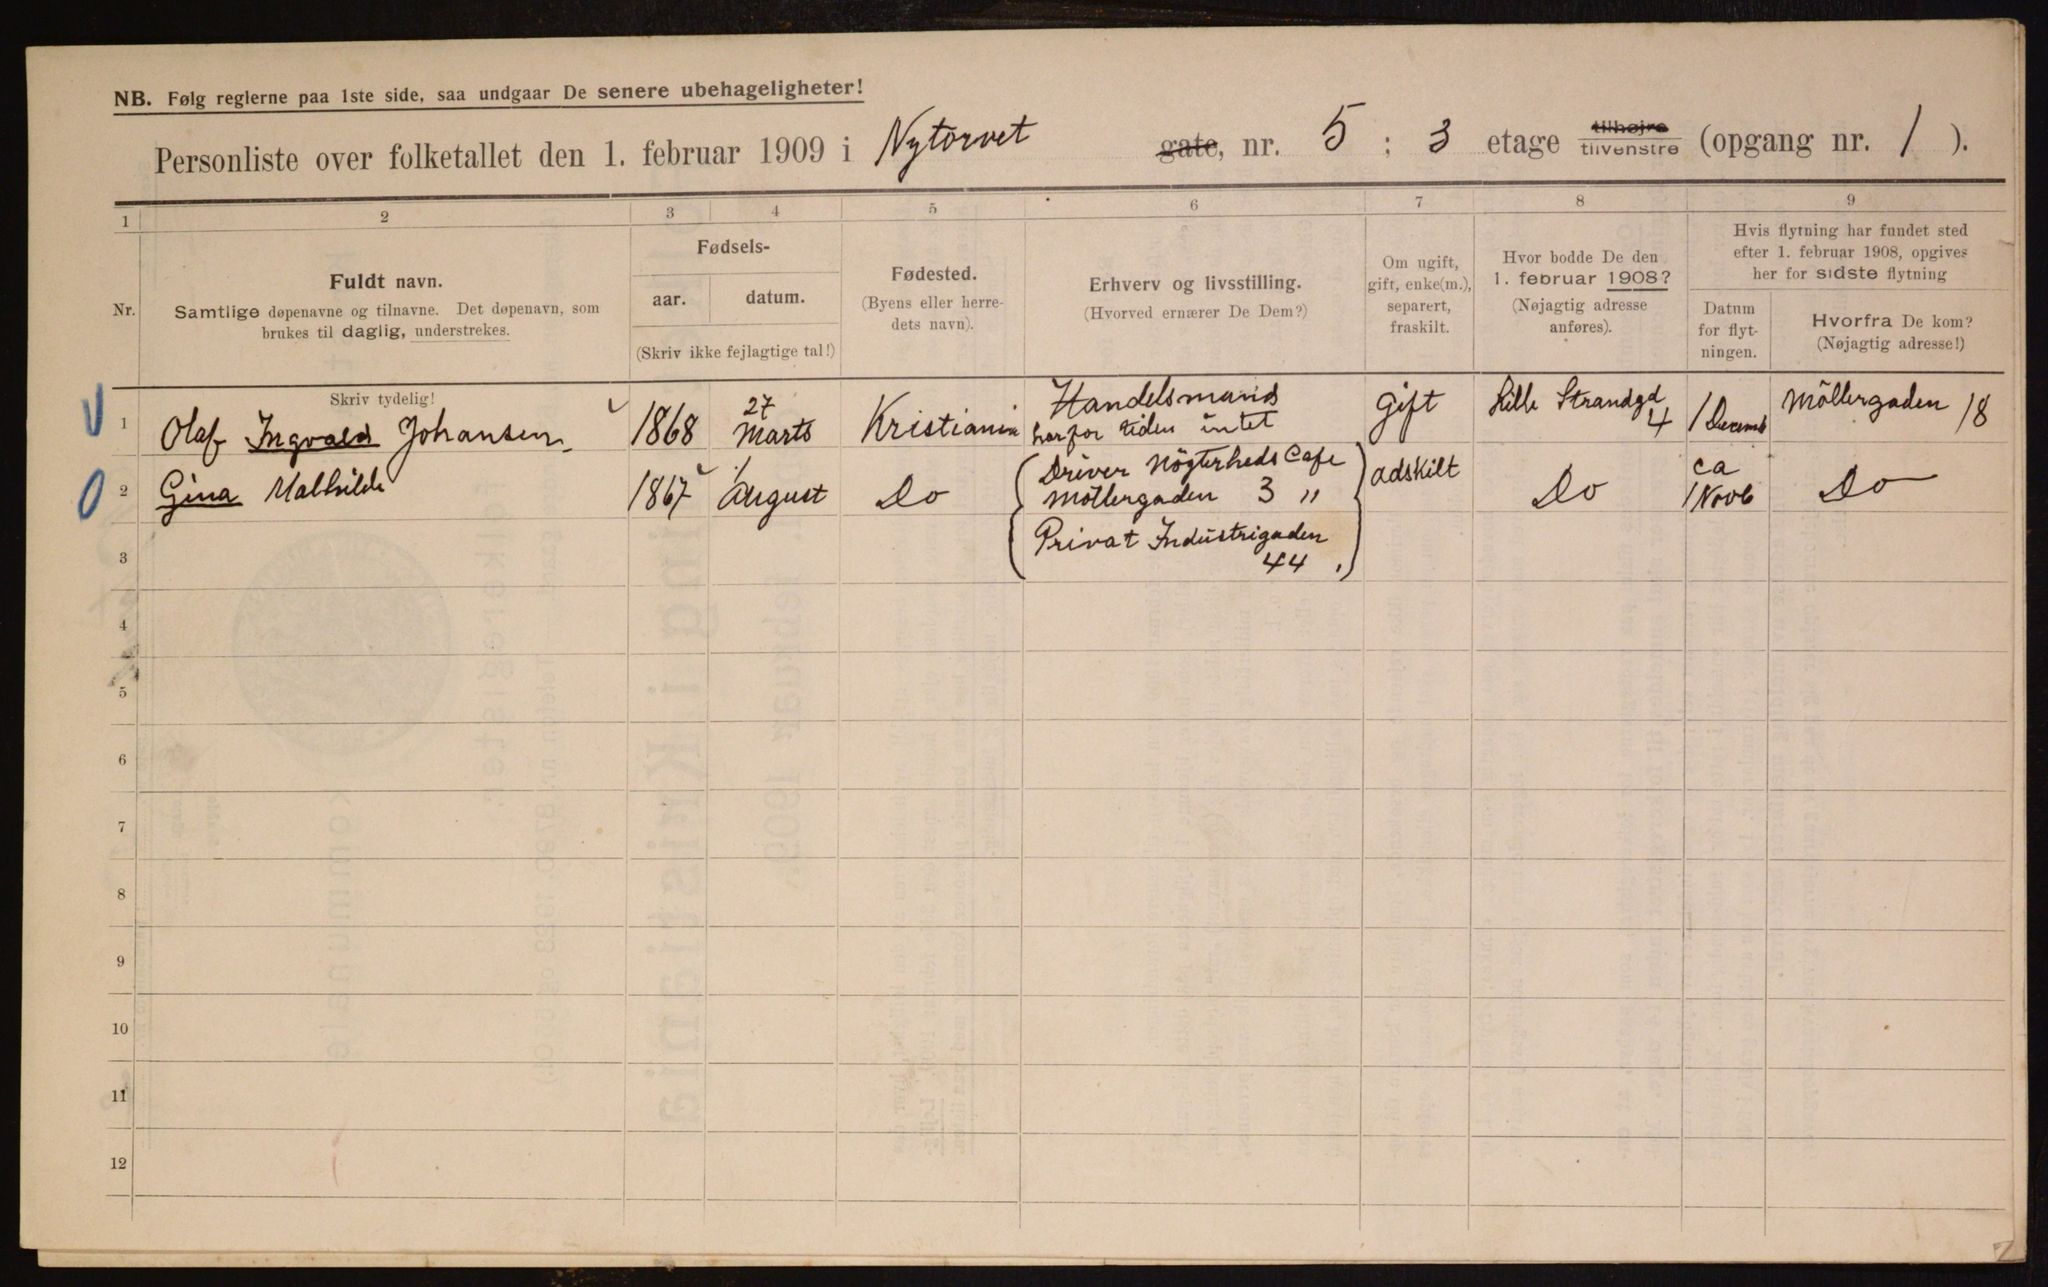 NB. Følg reglerne paa 1ste side, saa undgaar De senere ubehageligheter!
Personliste over folketallet den 1. februar 1909 i Nytorvet gate, nr. 5 ; 3 etage tilhøjre tilvenstre (opgang nr. 1 ).
1 2 3 4 5 6 7 8 9
Nr.
Fuldt navn.
Samtlige døpenavne og tilnavne. Det døpenavn, som
brukes til daglig, understrekes.
Skriv tydelig!
Fødsels-
aar. datum.
(Skriv ikke fejlagtige tal!)
Fødested.
(Byens eller herre-
dets navn).
Erhverv og livsstilling.
(Hvorved ernærer De Dem?)
Om ugift,
gift, enke(m.),
separert,
fraskilt.
Hvor bodde De den
1. februar 1908?
(Nøjagtig adresse
anføres).
Hvis flytning har fundet sted
efter 1. februar 1908, opgives
her for sidste flytning
Datum
for flyt-
ningen.
Hvorfra De kom?
(Nøjagtig adresse!)
1 Olaf Ingvald Johansen 1868 27 Marts Kristiania Handelsmand
har for tiden intet
Gift Lille Strandgd 4 1 Decemb Möllergaden 18
2 Gina Mathilde 1867 1 August Do (Driver Nögterheds Cafe
Möllergaden 3 "
Privat Industrigaden
44 .)
adskilt Do ca
1 Novb Do
3
4
5
6
7
8
9
10
11
12